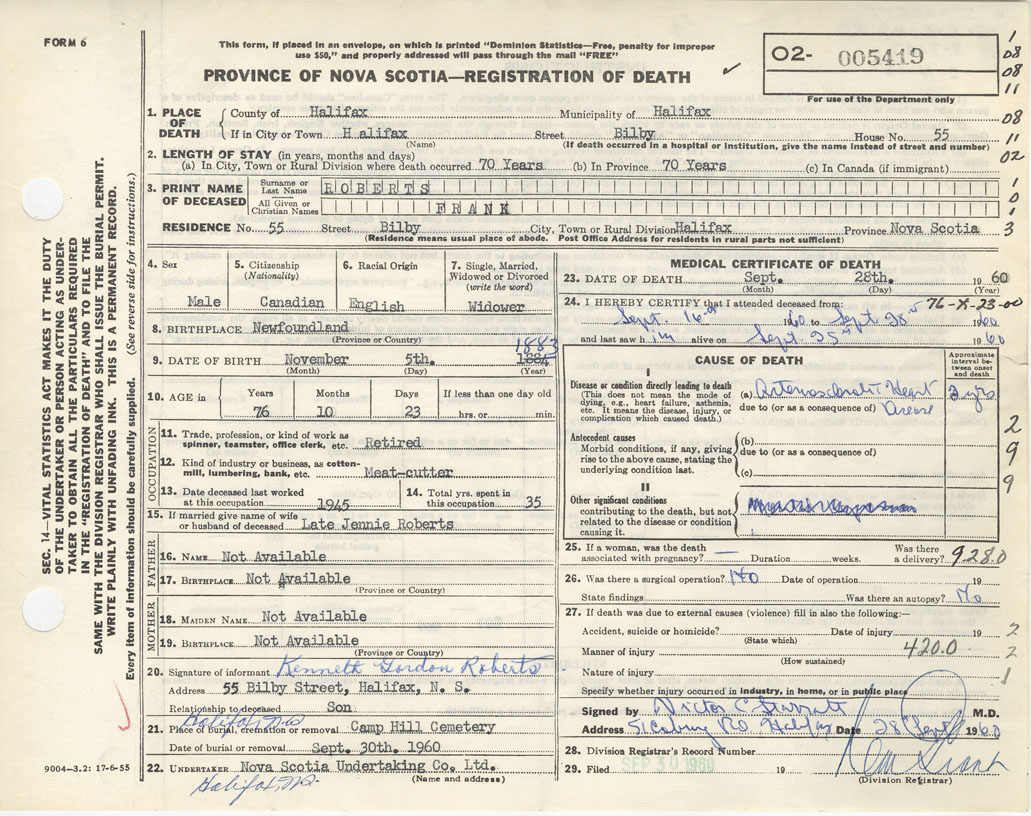 FORM 6
This form, if placed in an envelope, on which is printed "Dominion Statistics—Free, penalty for improper
use $50," and properly addressed will pass through the mail "FREE"
PROVINCE OF NOVA SCOTIA—REGISTRATION OF DEATH ✓
02- 005419
For use of the Department only
1
08
08
11
08
11
02
1
0
1
3
SEC. 14—VITAL STATISTICS ACT MAKES IT THE DUTY
OF THE UNDERTAKER OR PERSON ACTING AS UNDER-
TAKER TO OBTAIN ALL THE PARTICULARS REQUIRED
IN THE "REGISTRATION OF DEATH" AND TO FILE THE
SAME WITH THE DIVISION REGISTRAR WHO SHALL ISSUE THE BURIAL PERMIT.
WRITE PLAINLY WITH UNFADING INK. THIS IS A PERMANENT RECORD.
Every item of information should be carefully supplied. (See reverse side for instructions.)
1. PLACE OF DEATH
County of Halifax Municipality of Halifax
If in City or Town H alifax Street Bilby House No. 55
(Name) (If death occurred in a hospital or institution, give the name instead of street and number)
2. LENGTH OF STAY (in years, months and days)
(a) In City, Town or Rural Division where death occurred 70 Years (b) In Province 70 Years (c) In Canada (if immigrant)
3. PRINT NAME OF DECEASED
Surname or Last Name ROBERTS
All Given or Christian Names FRANK
RESIDENCE No. 55 Street Bilby City, Town or Rural Division Halifax Province Nova Scotia
(Residence means usual place of abode. Post Office Address for residents in rural parts not sufficient)
4. Sex Male
5. Citizenship (Nationality) Canadian
6. Racial Origin English
7. Single, Married, Widowed or Divorced (write the word) Widower
8. BIRTHPLACE Newfoundland
(Province or Country)
9. DATE OF BIRTH November 5th. 1884 1883
(Month) (Day) (Year)
10. AGE in Years Months Days If less than one day old
76 10 23 hrs. or min.
OCCUPATION
11. Trade, profession, or kind of work as spinner, teamster, office clerk, etc. Retired
12. Kind of industry or business, as cotton-mill, lumbering, bank, etc. Meat-cutter
13. Date deceased last worked at this occupation 1945
14. Total yrs. spent in this occupation 35
15. If married give name of wife or husband of deceased Late Jennie Roberts
FATHER
16. NAME Not Available
17. BIRTHPLACE Not Available
(Province or Country)
MOTHER
18. MAIDEN NAME Not Available
19. BIRTHPLACE Not Available
(Province or Country)
20. Signature of informant Kenneth Gordon Roberts
Address 55 Bilby Street, Halifax, N. S.
Relationship to deceased Son
Halifax, N.S
21. Place of burial, cremation or removal Camp Hill Cemetery
Date of burial or removal Sept. 30th. 1960
22. UNDERTAKER Nova Scotia Undertaking Co. Ltd.
(Name and address)
Halifax, N.S.
9004—3.2: 17-6-55
MEDICAL CERTIFICATE OF DEATH
23. DATE OF DEATH Sept. 28th. 1960
(Month) (Day)
24. I HEREBY CERTIFY that I attended deceased from: 76-X-23-00
Sept. 16th 1960 to Sept 28th 1960
and last saw him alive on Sept. 25th 1960
CAUSE OF DEATH
Approximate interval between onset and death
I
Disease or condition directly leading to death
(This does not mean the mode of dying, e.g., heart failure, asthenia, etc. It means the disease, injury, or complication which caused death.)
(a) Arteriosclerotic Heart 3 yrs
due to (or as a consequence of) Disease
Antecedent causes
Morbid conditions, if any, giving rise to the above cause, stating the underlying condition last.
(b)
due to (or as a consequence of)
(c)
II
Other significant conditions contributing to the death, but not related to the disease or condition causing it.
2
9
9
25. If a woman, was the death associated with pregnancy? — Duration weeks. Was there a delivery? 9280
26. Was there a surgical operation? No Date of operation 19
State findings Was there an autopsy? No
27. If death was due to external causes (violence) fill in also the following:—
Accident, suicide or homicide? Date of injury 19 2
(State which)
Manner of injury 420.0 2
(How sustained)
Nature of injury 1
Specify whether injury occurred in industry, in home, or in public place
Signed by Victor C M.D.
Address Rd. Halifax Date 28 Sept 1960
28. Division Registrar's Record Number
29. Filed SEP 30 1960 19
(Division Registrar)